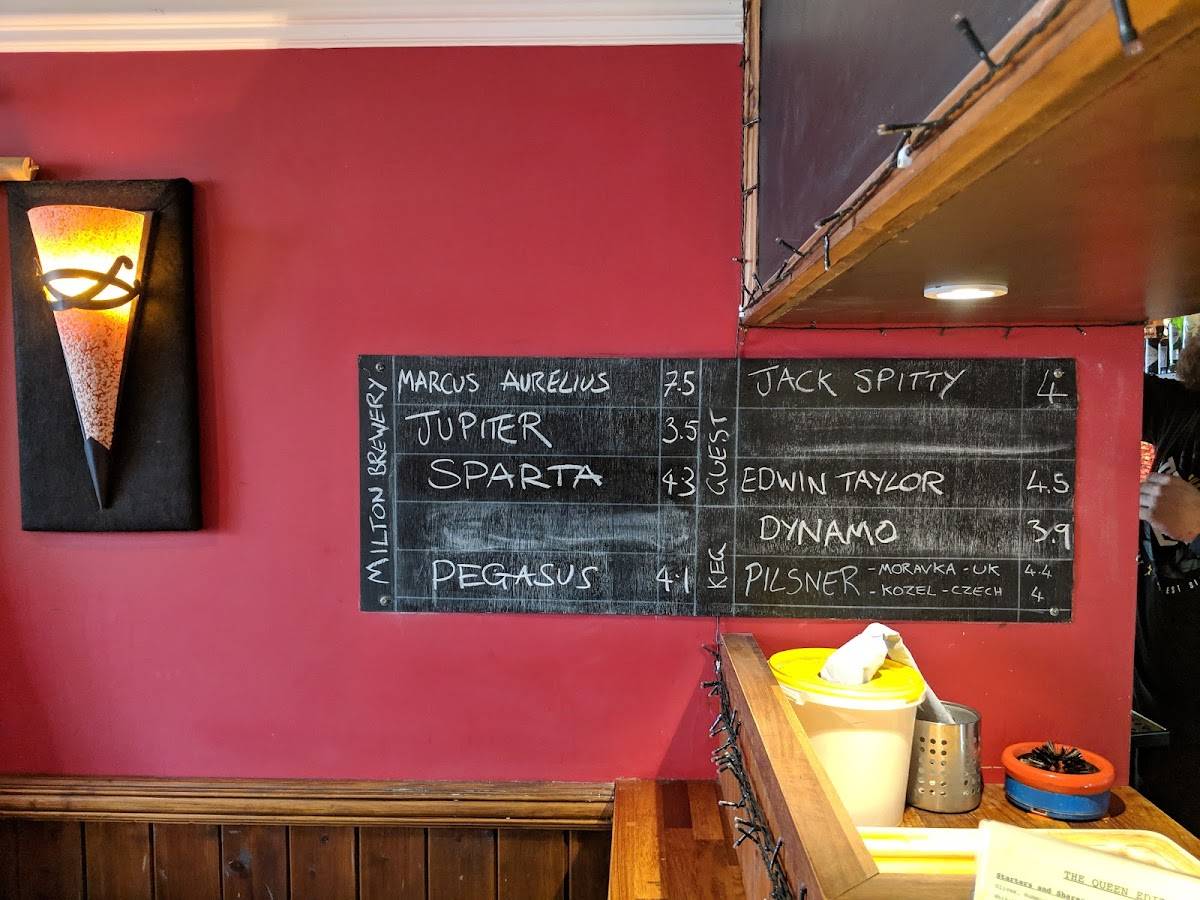 MILTON BREWERY
MARCUS AURELIUS 7.5
JUPITER 3.5
SPARTA 4.3
PEGASUS 4.1
GUEST
JACK SPITTY 4
EDWIN TAYLOR 4.5
KEG
DYNAMO 3.9
PILSNER - MORAVKA - UK 4.4
- KOZEL - CZECH 4
THE QUEEN EDI
Starters and Shar
EST